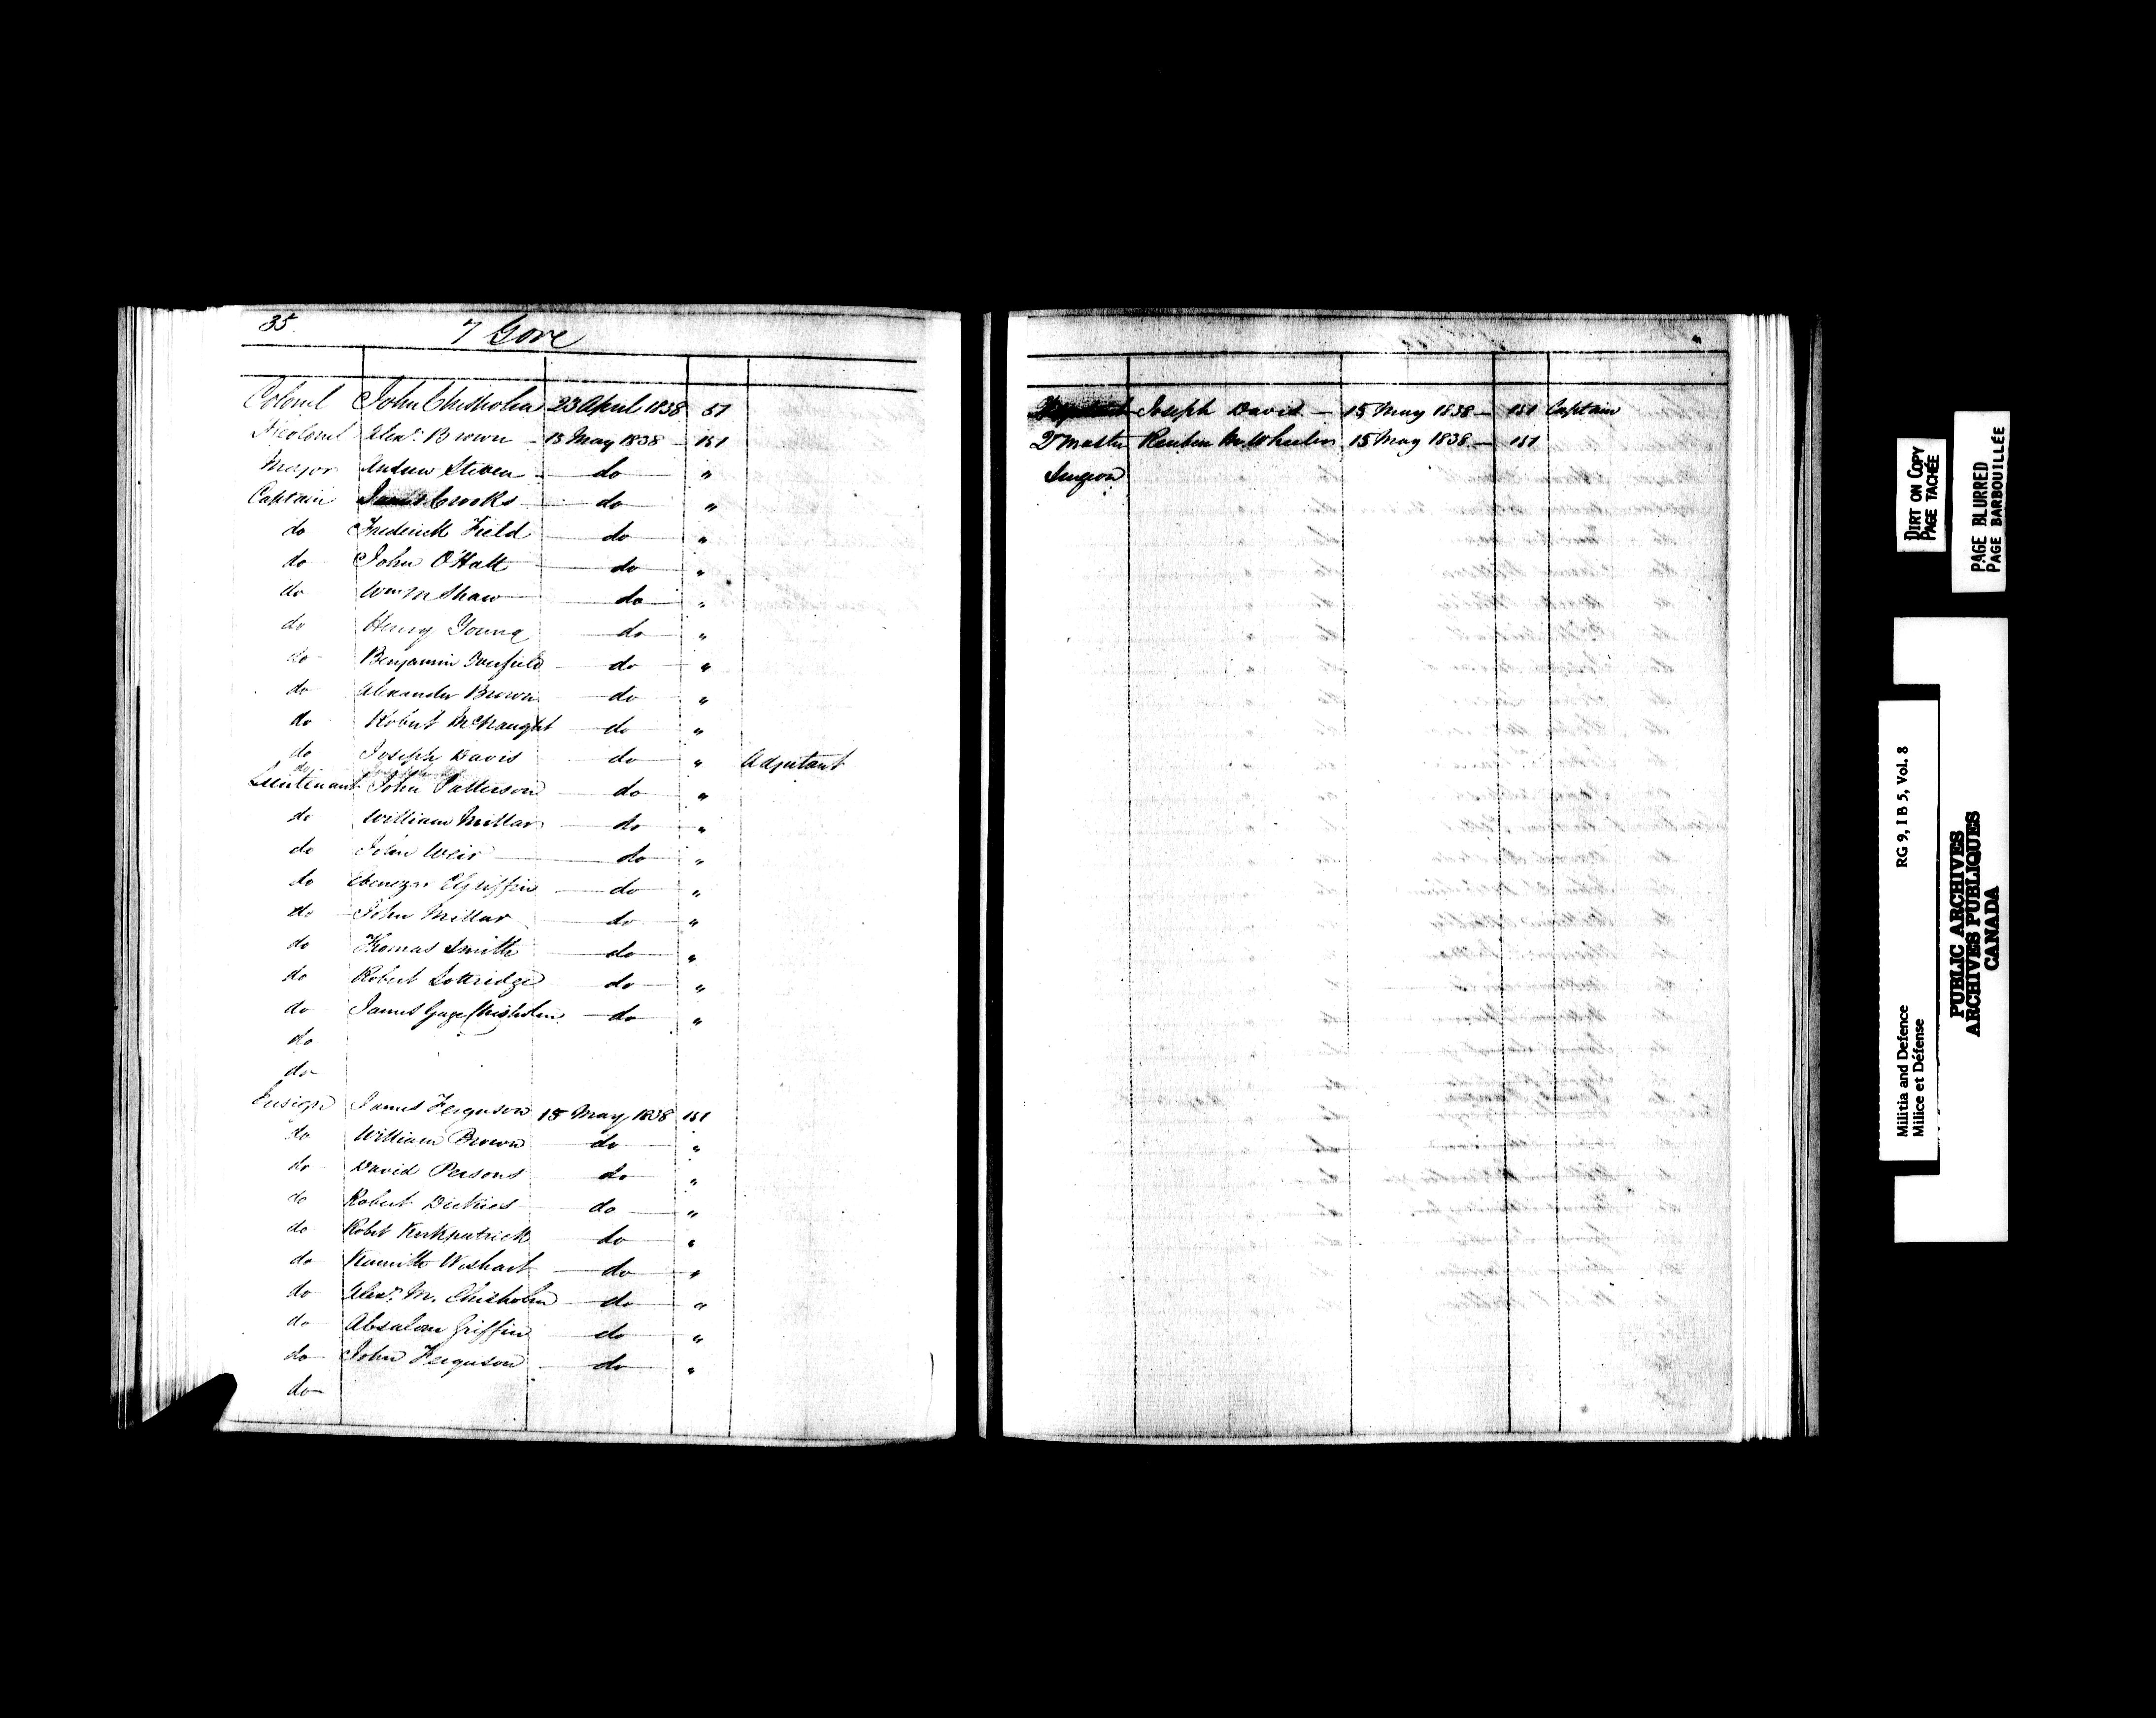 35 7 Gore
Colonel John Chisholm 23 April 1838 51
Lt Colonel Alexr. Brown 15 May 1838 151
Major Andrew Steven do "
Captain Crooks do "
do Frederick Field do "
do John O'Hatt do "
do Wm M Shaw do "
do Henry Young do "
do Benjamin Overfield do "
do Alexander Brown do "
do Robert McNaught do "
do Joseph Davis do " Adjutant
Lieutenant John Patterson do "
do William Millar do "
do John Weir do "
do Ebenezar C Griffin do "
do John Millar do "
do Thomas Smith do "
do Robert Lottridge do "
do James Gage Chisholm do "
do
do
Ensign James Ferguson 15 May 1838 151
do William Brown do "
do David Persons do "
do Robert Dickies do "
do Robt Kirkpatrick do "
do Kennith Wishart do "
do Alexr. M. Chisholm do "
do Absalom Griffin do "
do John Ferguson do "
do
Joseph David 15 May 1838 151 Captain
Qr Master Reuben M. Wheeler 15 May 1838 151
Surgeon
DIRT ON COPY
PAGE TACHÉE
PAGE BLURRED
PAGE BARBOUILLÉE
Militia and Defence RG 9, I B 5, Vol. 8
Milice et Défense
PUBLIC ARCHIVES
ARCHIVES PUBLIQUES
CANADA